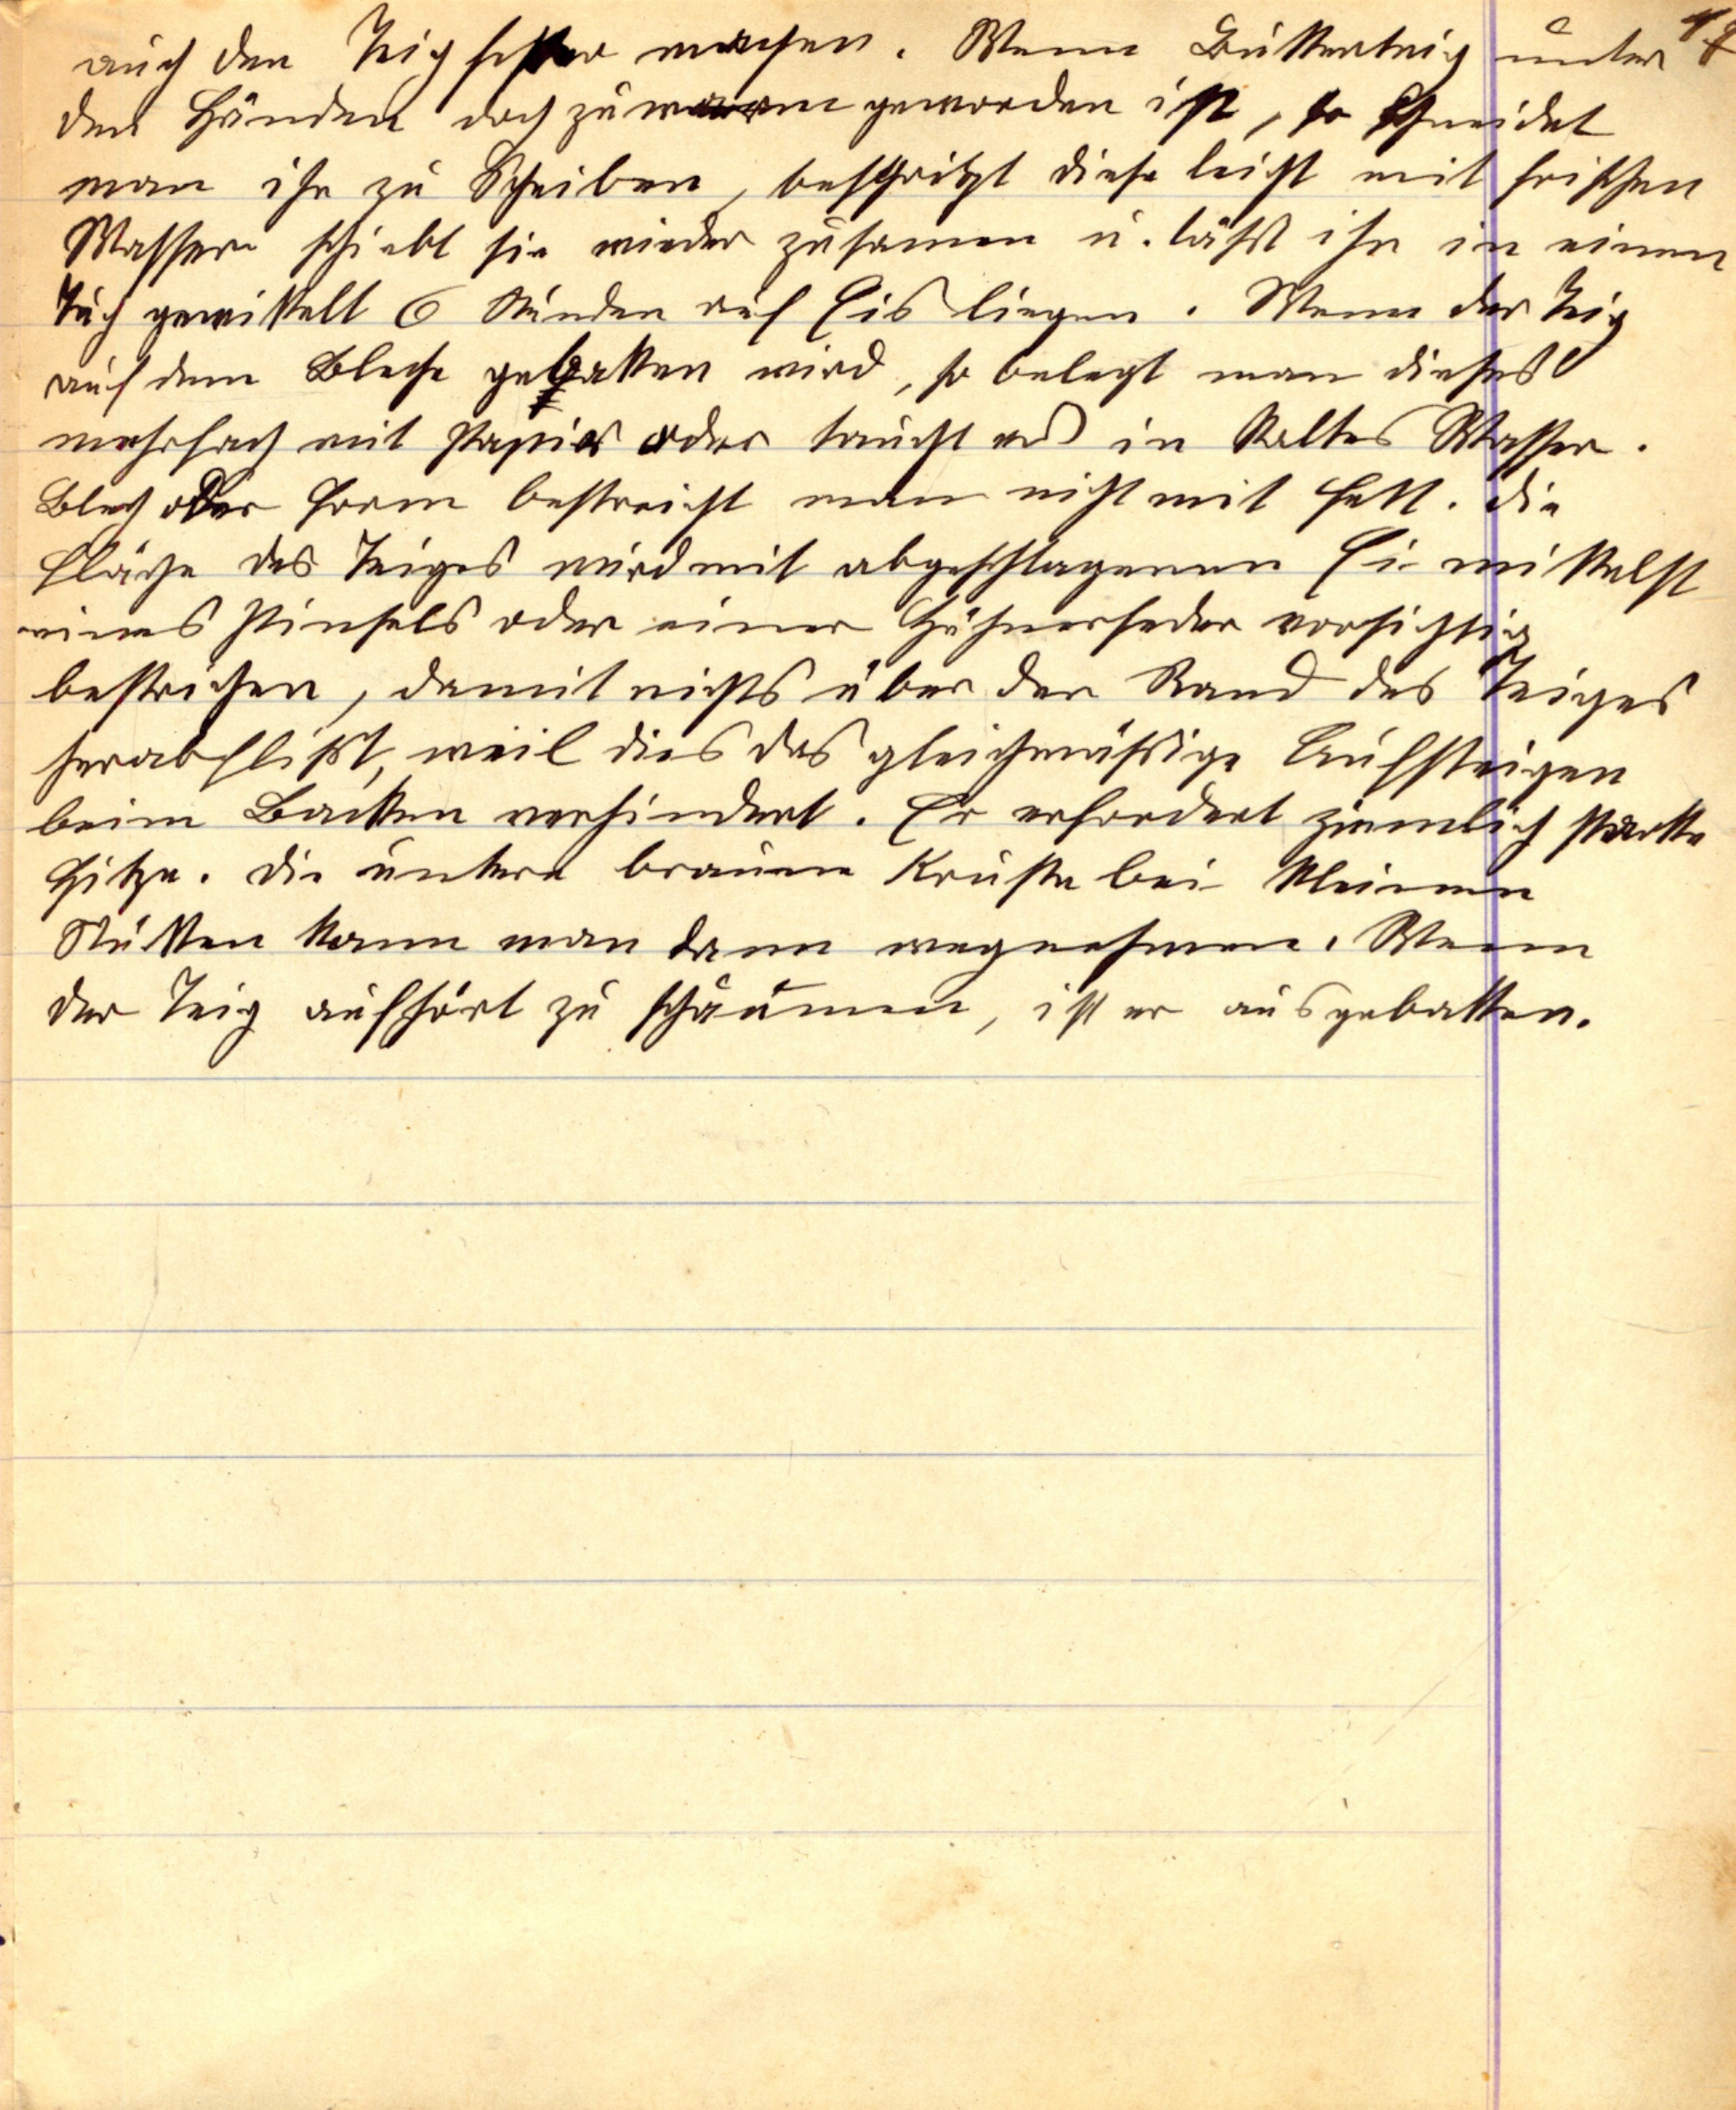 auch den Teig fester machen. Wenn Butterteig unter
den Händen doch zu warm geworden ist, so schneidet
man ihn zu Scheiben, bespritzt diese leicht mit frischen
Wasser schiebt sie wieder zusamen u. läßt ihn in einen
Tuch gewickelt 6 Stunden auf Eis liegen. Wenn der Teig
auf dem Bleche gebacken wird, so belegt man dieses
mehrfach mit Papier oder taucht es in kaltes Wasser.
Blech oder Form bestreicht man nicht mit Fett. Die
Fläche des Teiges wird mit abgeschlagenen Ei mittelst
eines Pinsels oder einer Hühnerfeder vorsichtig
bestrichen, damit nichts über den Rand des Teiges
herabfließt, weil dies das gleichmäßige Aufsteigen
beim Backen verhindert. Er erfordert ziemlich starke
Hitze. Die untere braune Kruste bei kleinen
Stücken kann man dann wegnehmen. Wenn
der Teig aufhört zu schäumen, ist er ausgebacken.